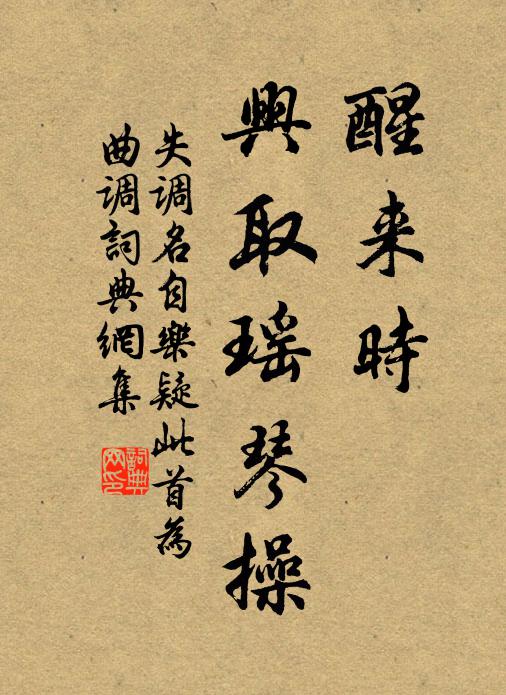 醒来時
興取瑶琴操
失调名自樂疑此首為
曲调詞典網集
詞典网印